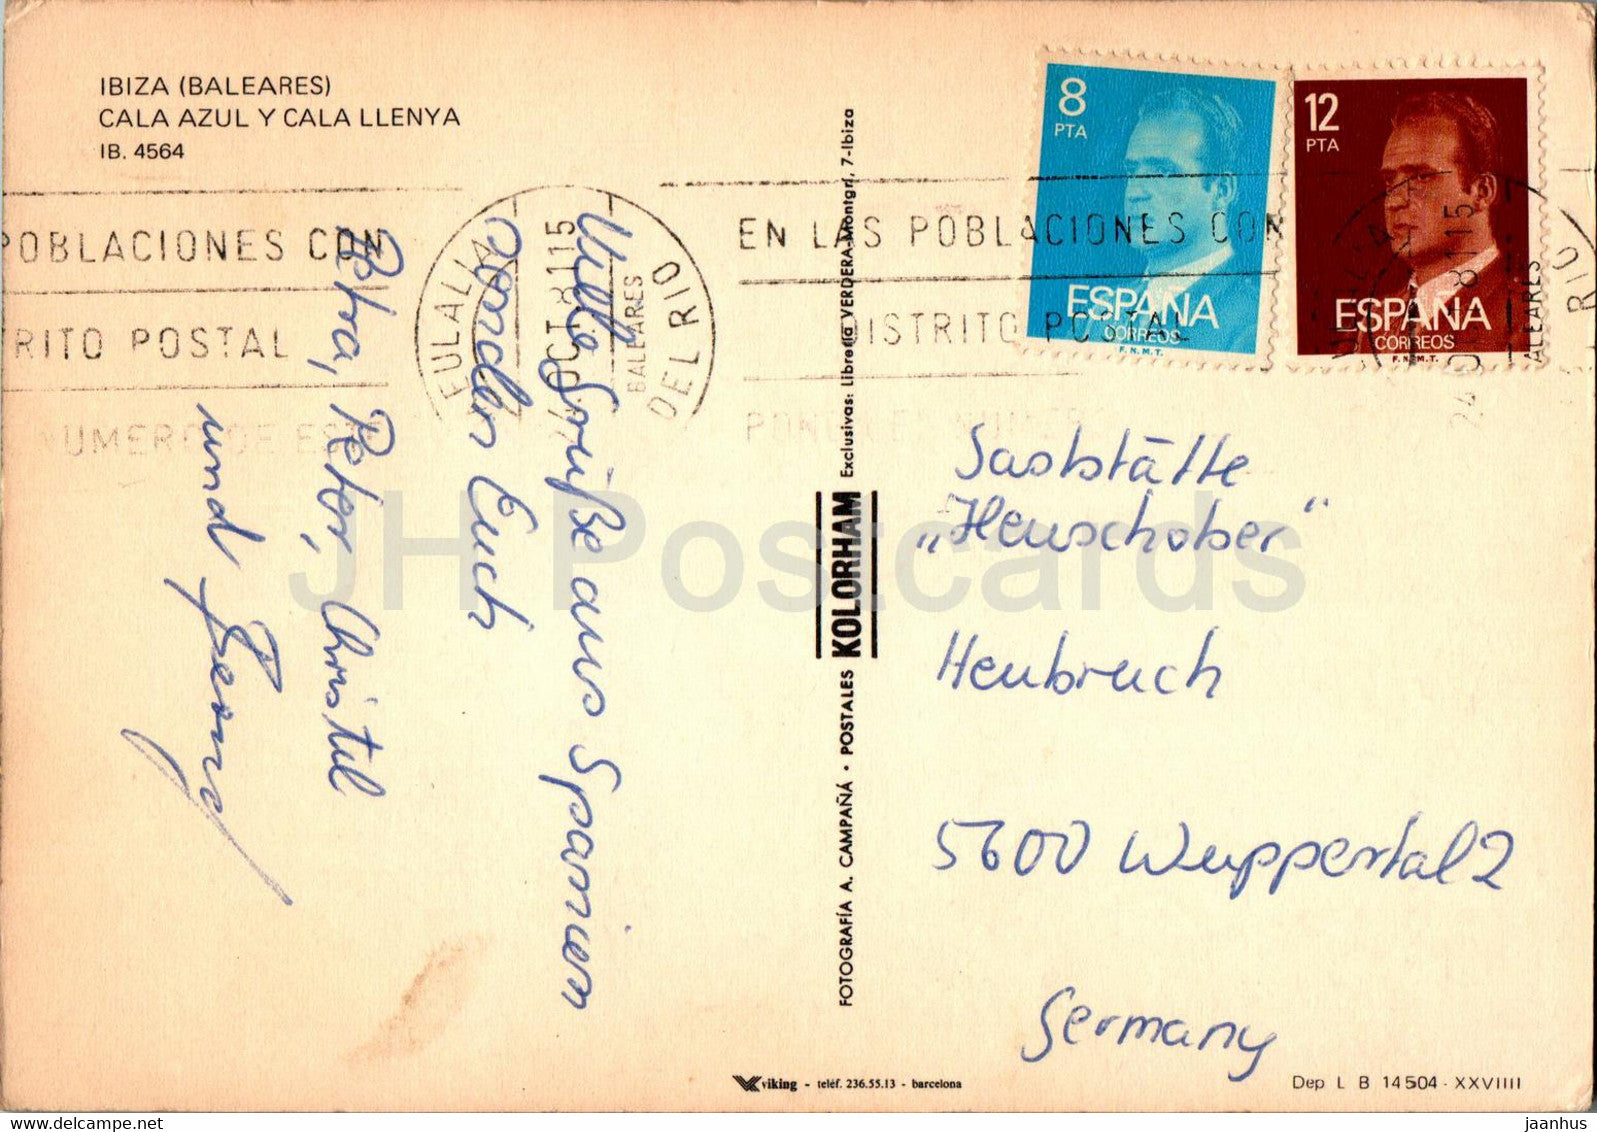 IBIZA (BALEARES)
CALA AZUL Y CALA LLENYA
IB. 4564
8
PTA
ESPAÑA
CORREOS
F.N.M.T.
12
PTA
ESPAÑA
CORREOS
F.N.M.T.
POBLACIONES CON
RITO POSTAL
NUMERO DE
EULALIA DEL RIO
OCT 81 15
BALEARES
EN LAS POBLACIONES CON
DISTRITO POSTAL
24 OCT 81 15
BALEARES
RIO
Viele Grüße aus Spanien
senden Euch
Petra, Peter, Christel
und Georg
Exclusivas: Librería VERDERA-Montgrí, 7-Ibiza
KOLORHAM
FOTOGRAFÍA A. CAMPAÑÁ · POSTALES
Gaststätte
„Heuschober"
Heubruch
5600 Wuppertal 2
Germany
viking - teléf. 236.55.13 - barcelona
Dep L B 14504-XXVIIII
JH Postcards
delcampe.net
jaanhus